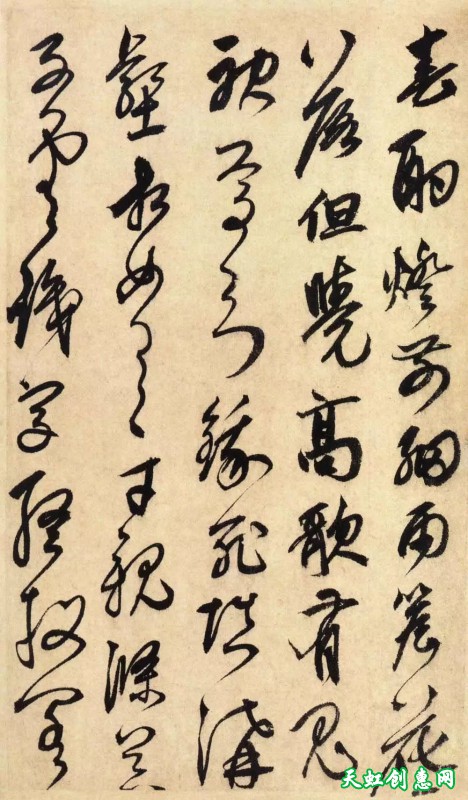 春酌燈前細雨簷花
落但覺高歌有鬼
神焉知餓死填溝
壑相如逸才親滌器
子雲識字終投閣
天虹创惠网